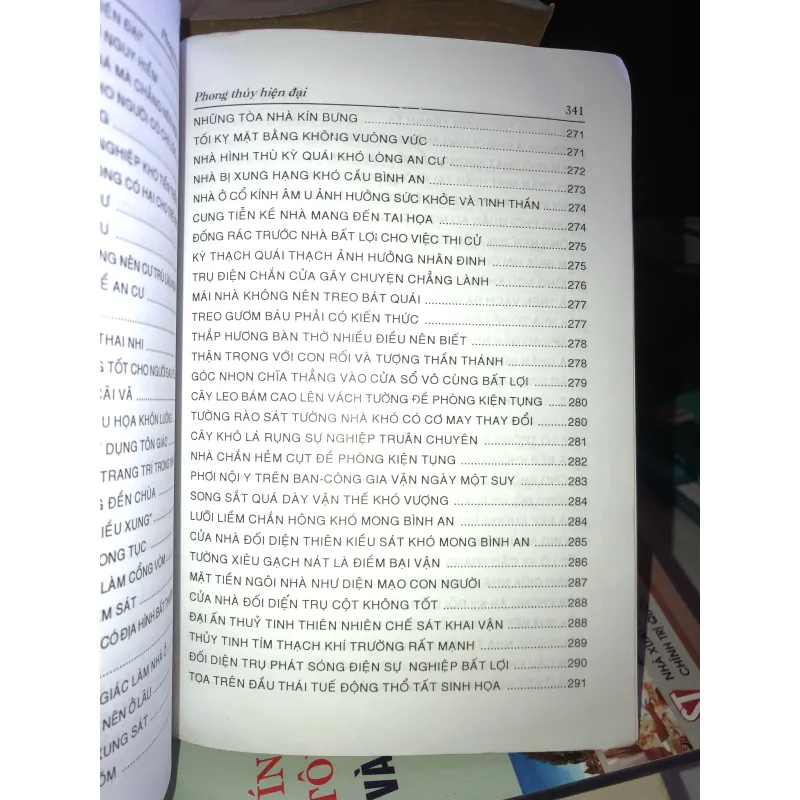 ÊN ĐẠT
NGUY HIỂM
NG
NGHIỆP KHÓ TIẾN
ONG CÓ HẠI CHO
Ế AN CƯ
THAI NHI
G TỐT CHO NGƯỜI
CÃI VÃ
U HỌA KHÔN LƯỜNG
DỤNG TÔN GIÁO
TRANG TRÍ TRONG
G ĐỀN CHÙA
HIẾU XUNG"
ONG TỤC
LÀM CỔNG VÒM
M SÁT
CÓ ĐỊA HÌNH BẤT
GIÁC LÀM NHÀ Ở
NÊN Ở LÂU
XUNG SÁT
ÓM
Phong thủy hiện đại 341
NHỮNG TÒA NHÀ KÍN BƯNG 271
TỐI KỴ MẶT BẰNG KHÔNG VUÔNG VỨC 271
NHÀ HÌNH THÙ KỲ QUÁI KHÓ LÒNG AN CƯ 272
NHÀ BỊ XUNG HẠNG KHÓ CẦU BÌNH AN 273
NHÀ Ở CỔ KÍNH ÂM U ẢNH HƯỞNG SỨC KHỎE VÀ TINH THẦN 274
CUNG TIỄN KỀ NHÀ MANG ĐẾN TAI HỌA 274
ĐỐNG RÁC TRƯỚC NHÀ BẤT LỢI CHO VIỆC THI CỬ 275
KỲ THẠCH QUÁI THẠCH ẢNH HƯỞNG NHÂN ĐINH 275
TRỤ ĐIỆN CHẮN CỬA GÂY CHUYỆN CHẲNG LÀNH 276
MÁI NHÀ KHÔNG NÊN TREO BÁT QUÁI 277
TREO GƯƠM BÁU PHẢI CÓ KIẾN THỨC 277
THẮP HƯƠNG BÀN THỜ NHIỀU ĐIỀU NÊN BIẾT 278
THẬN TRỌNG VỚI CON RỐI VÀ TƯỢNG THẦN THÁNH 278
GÓC NHỌN CHĨA THẲNG VÀO CỬA SỔ VÔ CÙNG BẤT LỢI 279
CÂY LEO BÁM CAO LÊN VÁCH TƯỜNG ĐỀ PHÒNG KIỆN TỤNG 280
TƯỜNG RÀO SÁT TƯỜNG NHÀ KHÓ CÓ CƠ MAY THAY ĐỔI 280
CÂY KHÔ LÁ RỤNG SỰ NGHIỆP TRUÂN CHUYÊN 281
NHÀ CHẮN HẺM CỤT ĐỀ PHÒNG KIỆN TỤNG 282
PHƠI NỘI Y TRÊN BAN-CÔNG GIA VẬN NGÀY MỘT SUY 283
SONG SẮT QUÁ DÀY VẬN THẾ KHÓ VƯỢNG 284
LƯỠI LIỀM CHẮN HÔNG KHÓ MONG BÌNH AN 284
CỬA NHÀ ĐỐI DIỆN THIÊN KIỀU SÁT KHÓ MONG BÌNH AN 285
TƯỜNG XIÊU GẠCH NÁT LÀ ĐIỀM BẠI VẬN 286
MẶT TIỀN NGÔI NHÀ NHƯ DIỆN MẠO CON NGƯỜI 287
CỬA NHÀ ĐỐI DIỆN TRỤ CỘT KHÔNG TỐT 288
ĐẠI ẤN THUỶ TINH THIÊN NHIÊN CHẾ SÁT KHAI VẬN 288
THỦY TINH TÍM THẠCH KHÍ TRƯỜNG RẤT MẠNH 289
ĐỐI DIỆN TRỤ PHÁT SÓNG ĐIỆN SỰ NGHIỆP BẤT LỢI 290
TỌA TRÊN ĐẦU THÁI TUẾ ĐỘNG THỔ TẤT SINH HỌA 291
CHÍNH TRỊ
VÀ